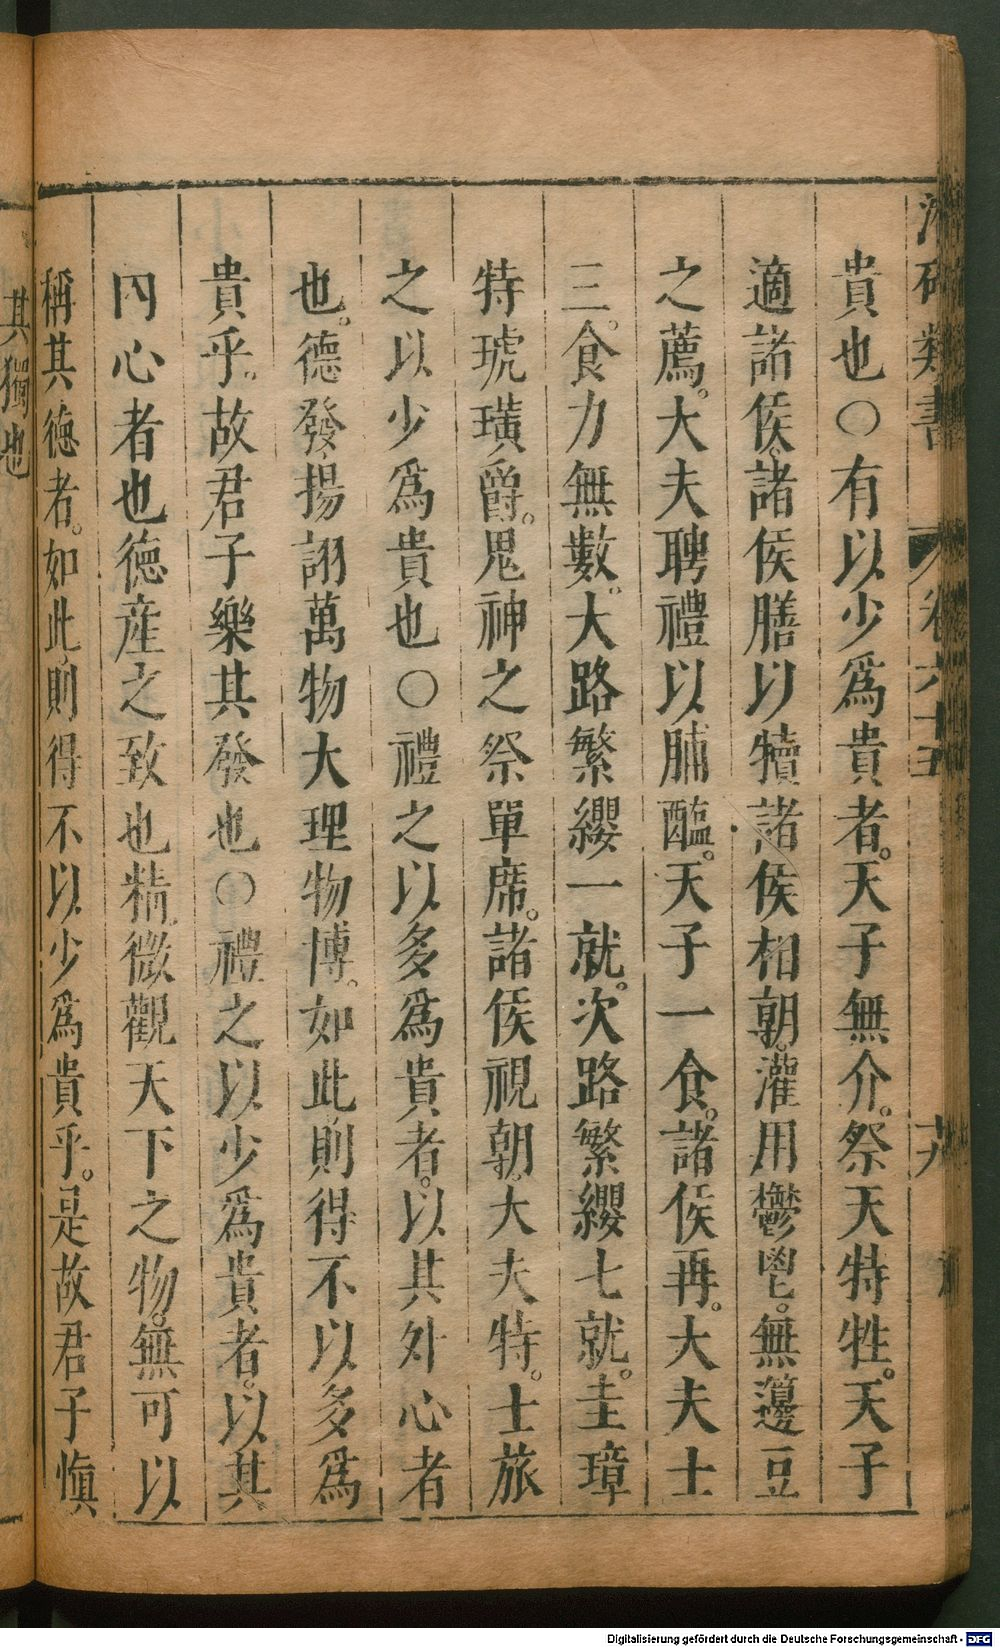 類書
卷六十五
貴也○有以少爲貴者。天子無介。祭天特牲。天子
適諸侯。諸侯膳以犢諸侯相朝。灌用鬱鬯。無籩豆
之薦。大夫聘禮以脯醢。天子一食。諸侯再。大夫士
三。食力無數。大路繁纓一就。次路繁纓七就。圭璋
特琥璜爵。鬼神之祭單席。諸侯視朝。大夫特。士旅
之以少爲貴也○禮之以多爲貴者。以其外心者
也。德發揚詡萬物大理物博。如此則得不以多爲
貴乎。故君子樂其發也○禮之以少爲貴者。以其
內心者也德産之致也精微觀天下之物。無可以
稱其德者。如此則得不以少爲貴乎。是故君子愼
其獨也
Digitalisierung gefördert durch die Deutsche Forschungsgemeinschaft - DFG